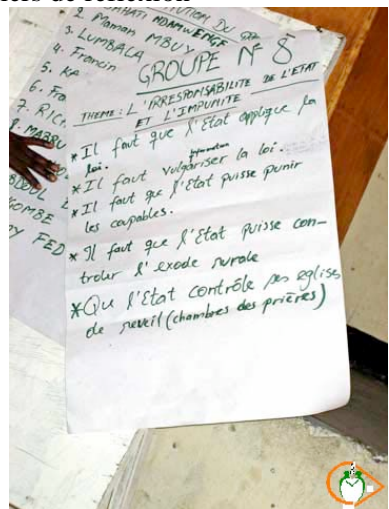 de réflexion
2. Maman MBUY
3. LUMBALA
4. Francin
5. KA
6. Fra
7. RIC
8. MABBU
OMBE
FED
GROUPE N° 8
THEME : L'IRRESPONSABILITE DE L'ETAT
ET L'IMPUNITE
* Il faut que l'Etat applique la
loi.
* Il faut vulgariser la loi.
* Il faut que l'Etat puisse punir
les coupables.
* Il faut que l'Etat puisse con-
troler l'exode rurale
* Que l'Etat contrôle ses eglises
de reveil (chambres des prières)